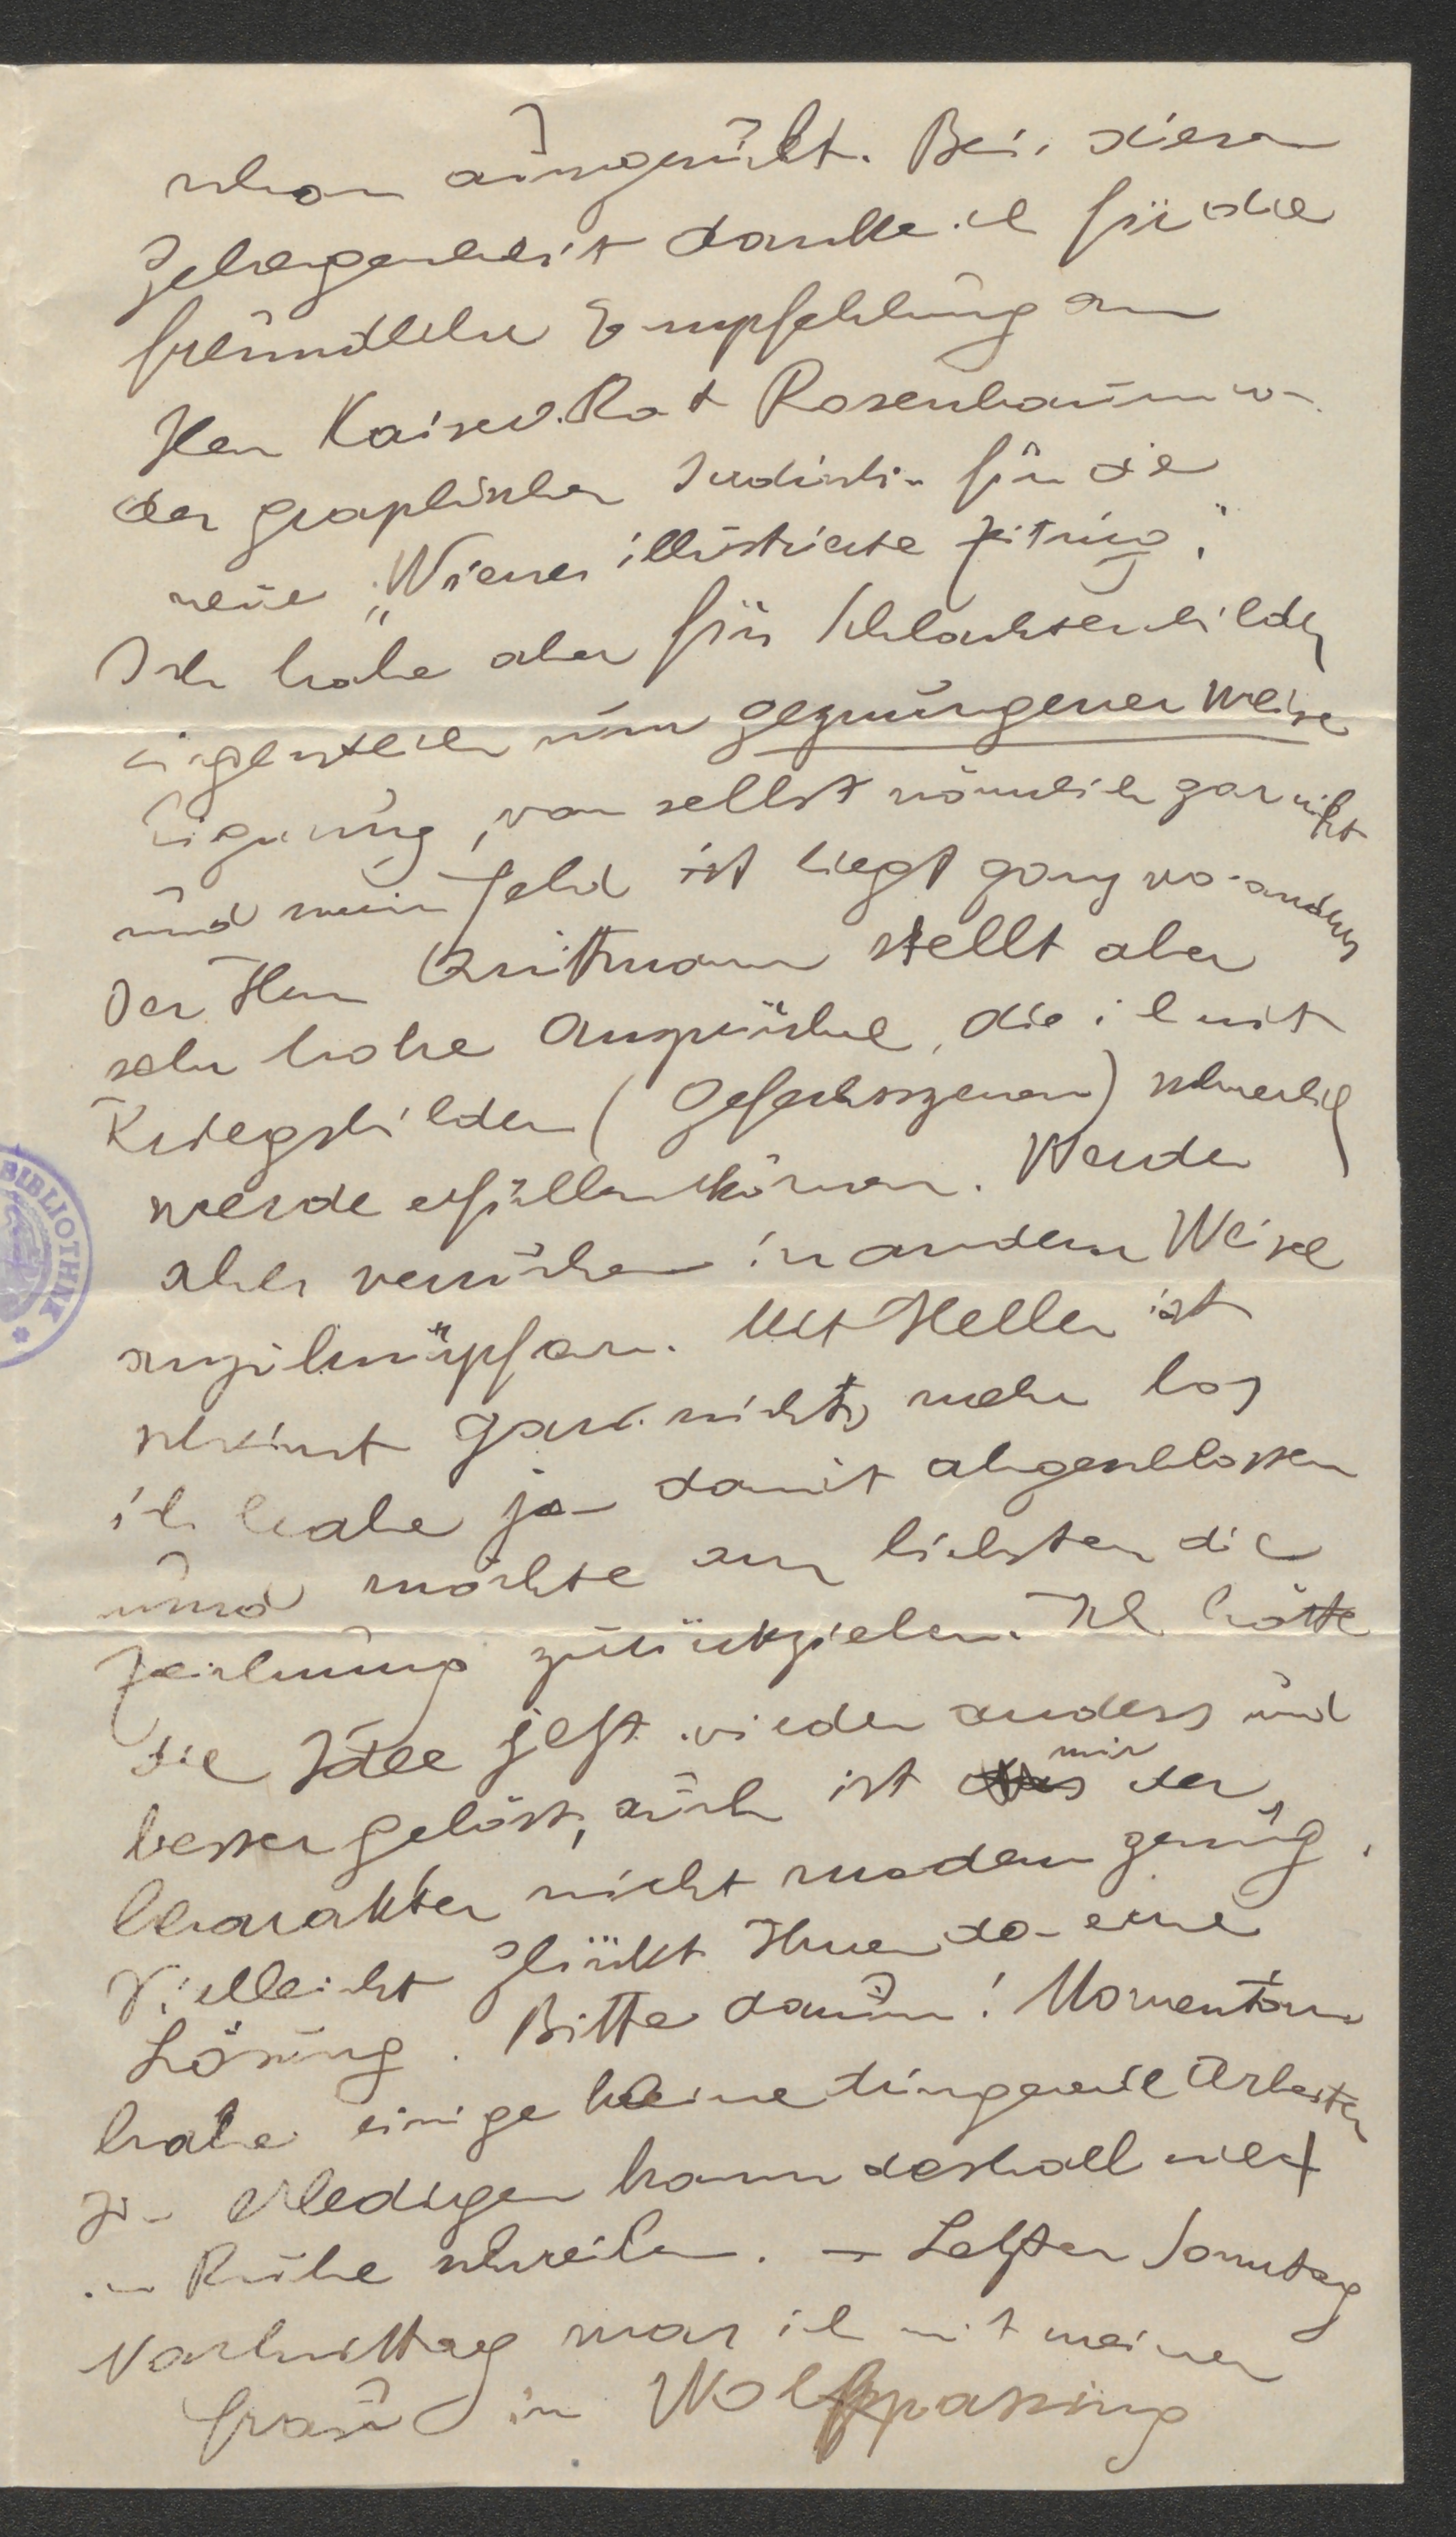 schon ausgeübt. Bei diesen
Gelegenheit danke ich für die
freundliche Empfehlung an
Herr Kaiserl. Rat Rosenbaum v.
der graphischen Industrie für die
neue „Wiener illustrierte Zeitung".
Ich habe aber für Schlachtenbilder
eigentlich nur gezwungener Weise
Eignung, von selbst nämlich gar nicht
und mein Feld ist liegt ganz wo anders
Der Herr stellt aber
sehr hohe Ansprüche, die ich mit
Kriegsbildern (Gefechtsszenen) schwerlich
werde erfüllen können. Werde
aber versuchen in anderer Weise
anzuknüpfen. Mit Heller ist
scheint gar nichts mehr los
ich habe ja damit abgeschlossen
und möchte am liebsten die
Zeichnung zurückziehen. Ich hätte
die Idee jetzt wieder anders und
besser gelöst, auch ist mir der
Charakter nicht modern genug.
Vielleicht glückt Ihnen da eine
Lösung. Bitte darum! Momentan
habe einige kleine dringende Arbeiten
zu erledigen kann deshalb nicht
in Ruhe schreiben. – Letzten Sonntag
Nachmittag war ich mit meiner
Frau in Wolfpassing
BIBLIOTHEK